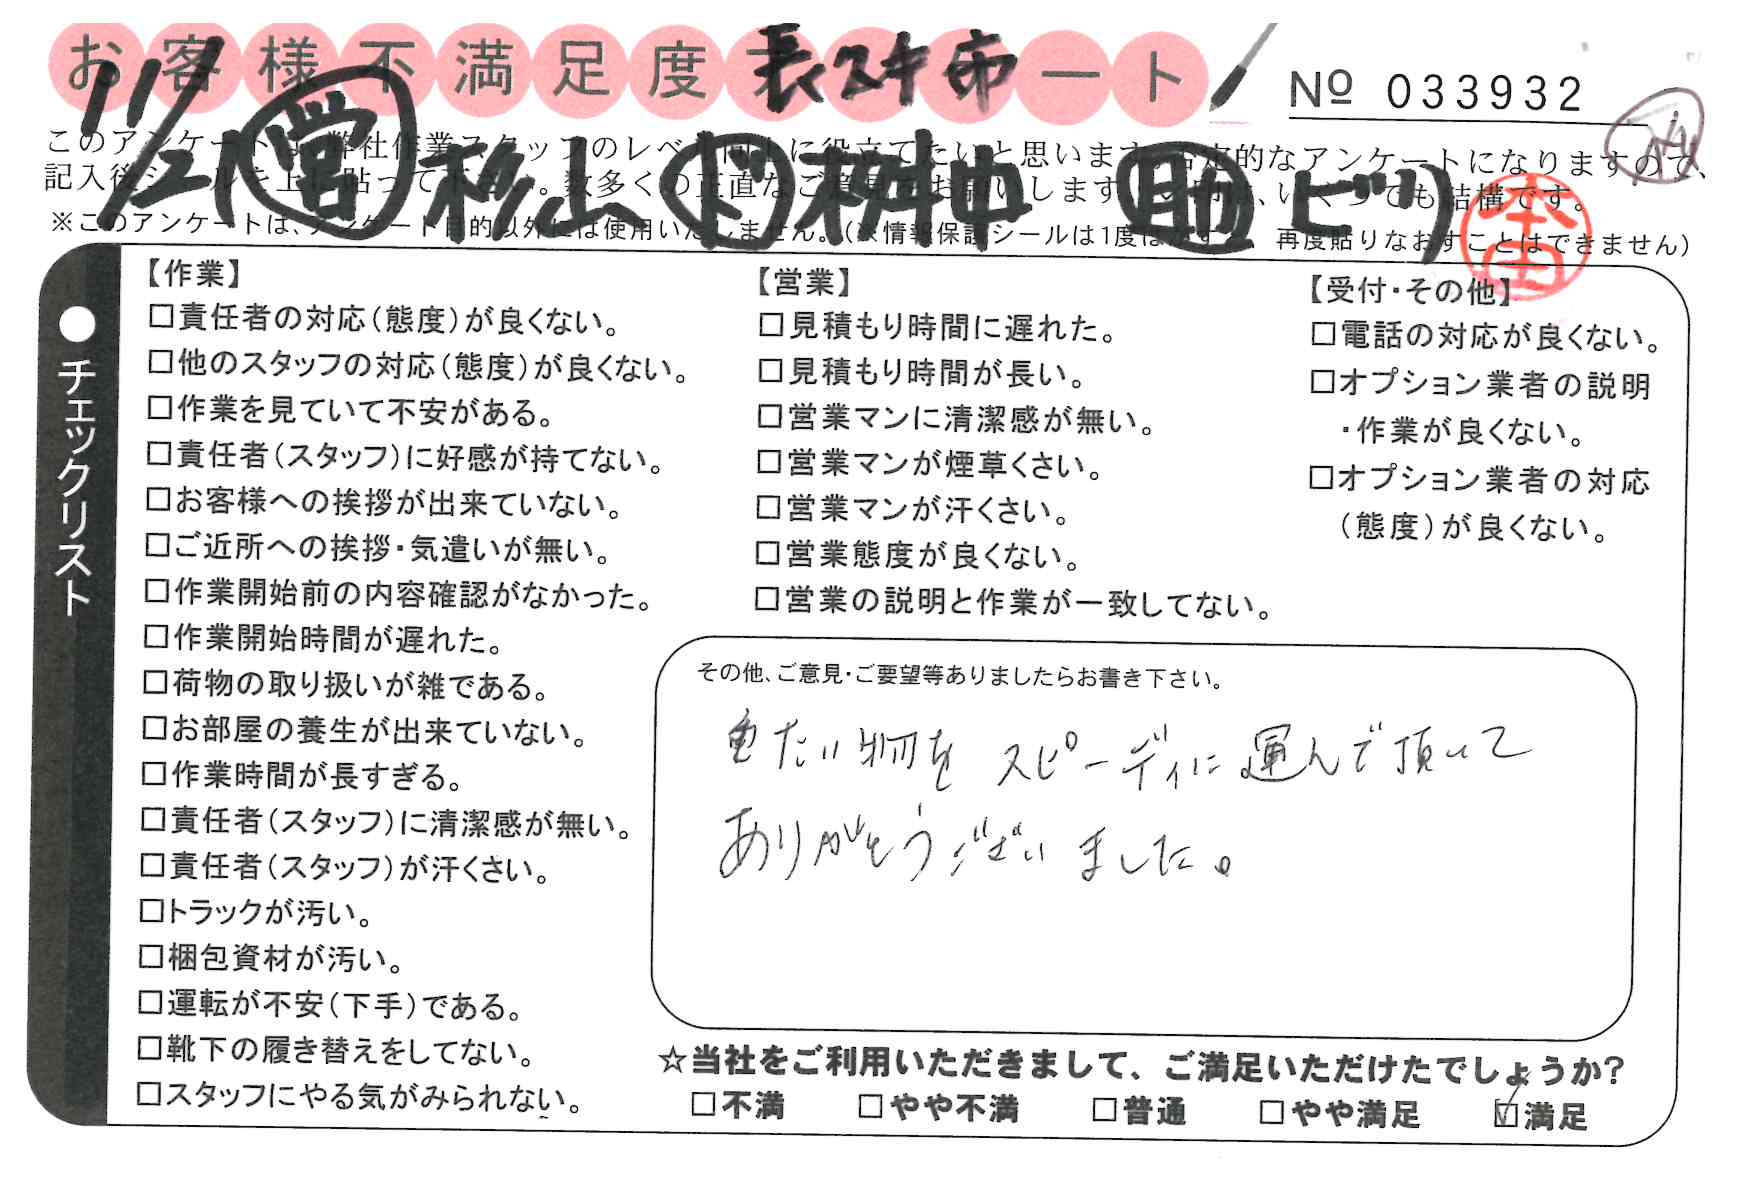 お客様不満足度アンケート
長久手市
№ 033932
11/21 営 杉山 ド 桝田 助 ビリ
このアンケートは、弊社作業スタッフのレベル向上に役立てたいと思います。否定的なアンケートになりますので、
記入後シールを上に貼って下さい。数多くの正直なご意見をお願いします。いくつでも結構です。
※このアンケートは、アンケート目的以外には使用いたしません。(※情報保護シールは1度はがすと、再度貼りなおすことはできません)
●チェックリスト
【作業】
□責任者の対応(態度)が良くない。
□他のスタッフの対応(態度)が良くない。
□作業を見ていて不安がある。
□責任者(スタッフ)に好感が持てない。
□お客様への挨拶が出来ていない。
□ご近所への挨拶・気遣いが無い。
□作業開始前の内容確認がなかった。
□作業開始時間が遅れた。
□荷物の取り扱いが雑である。
□お部屋の養生が出来ていない。
□作業時間が長すぎる。
□責任者(スタッフ)に清潔感が無い。
□責任者(スタッフ)が汗くさい。
□トラックが汚い。
□梱包資材が汚い。
□運転が不安(下手)である。
□靴下の履き替えをしてない。
□スタッフにやる気がみられない。
【営業】
□見積もり時間に遅れた。
□見積もり時間が長い。
□営業マンに清潔感が無い。
□営業マンが煙草くさい。
□営業マンが汗くさい。
□営業態度が良くない。
□営業の説明と作業が一致してない。
【受付・その他】
□電話の対応が良くない。
□オプション業者の説明
・作業が良くない。
□オプション業者の対応
(態度)が良くない。
その他、ご意見・ご要望等ありましたらお書き下さい。
重たい物を スピーディに運んで頂いて
ありがとうございました。
☆当社をご利用いただきまして、ご満足いただけたでしょうか?
□不満 □やや不満 □普通 □やや満足 ☑満足